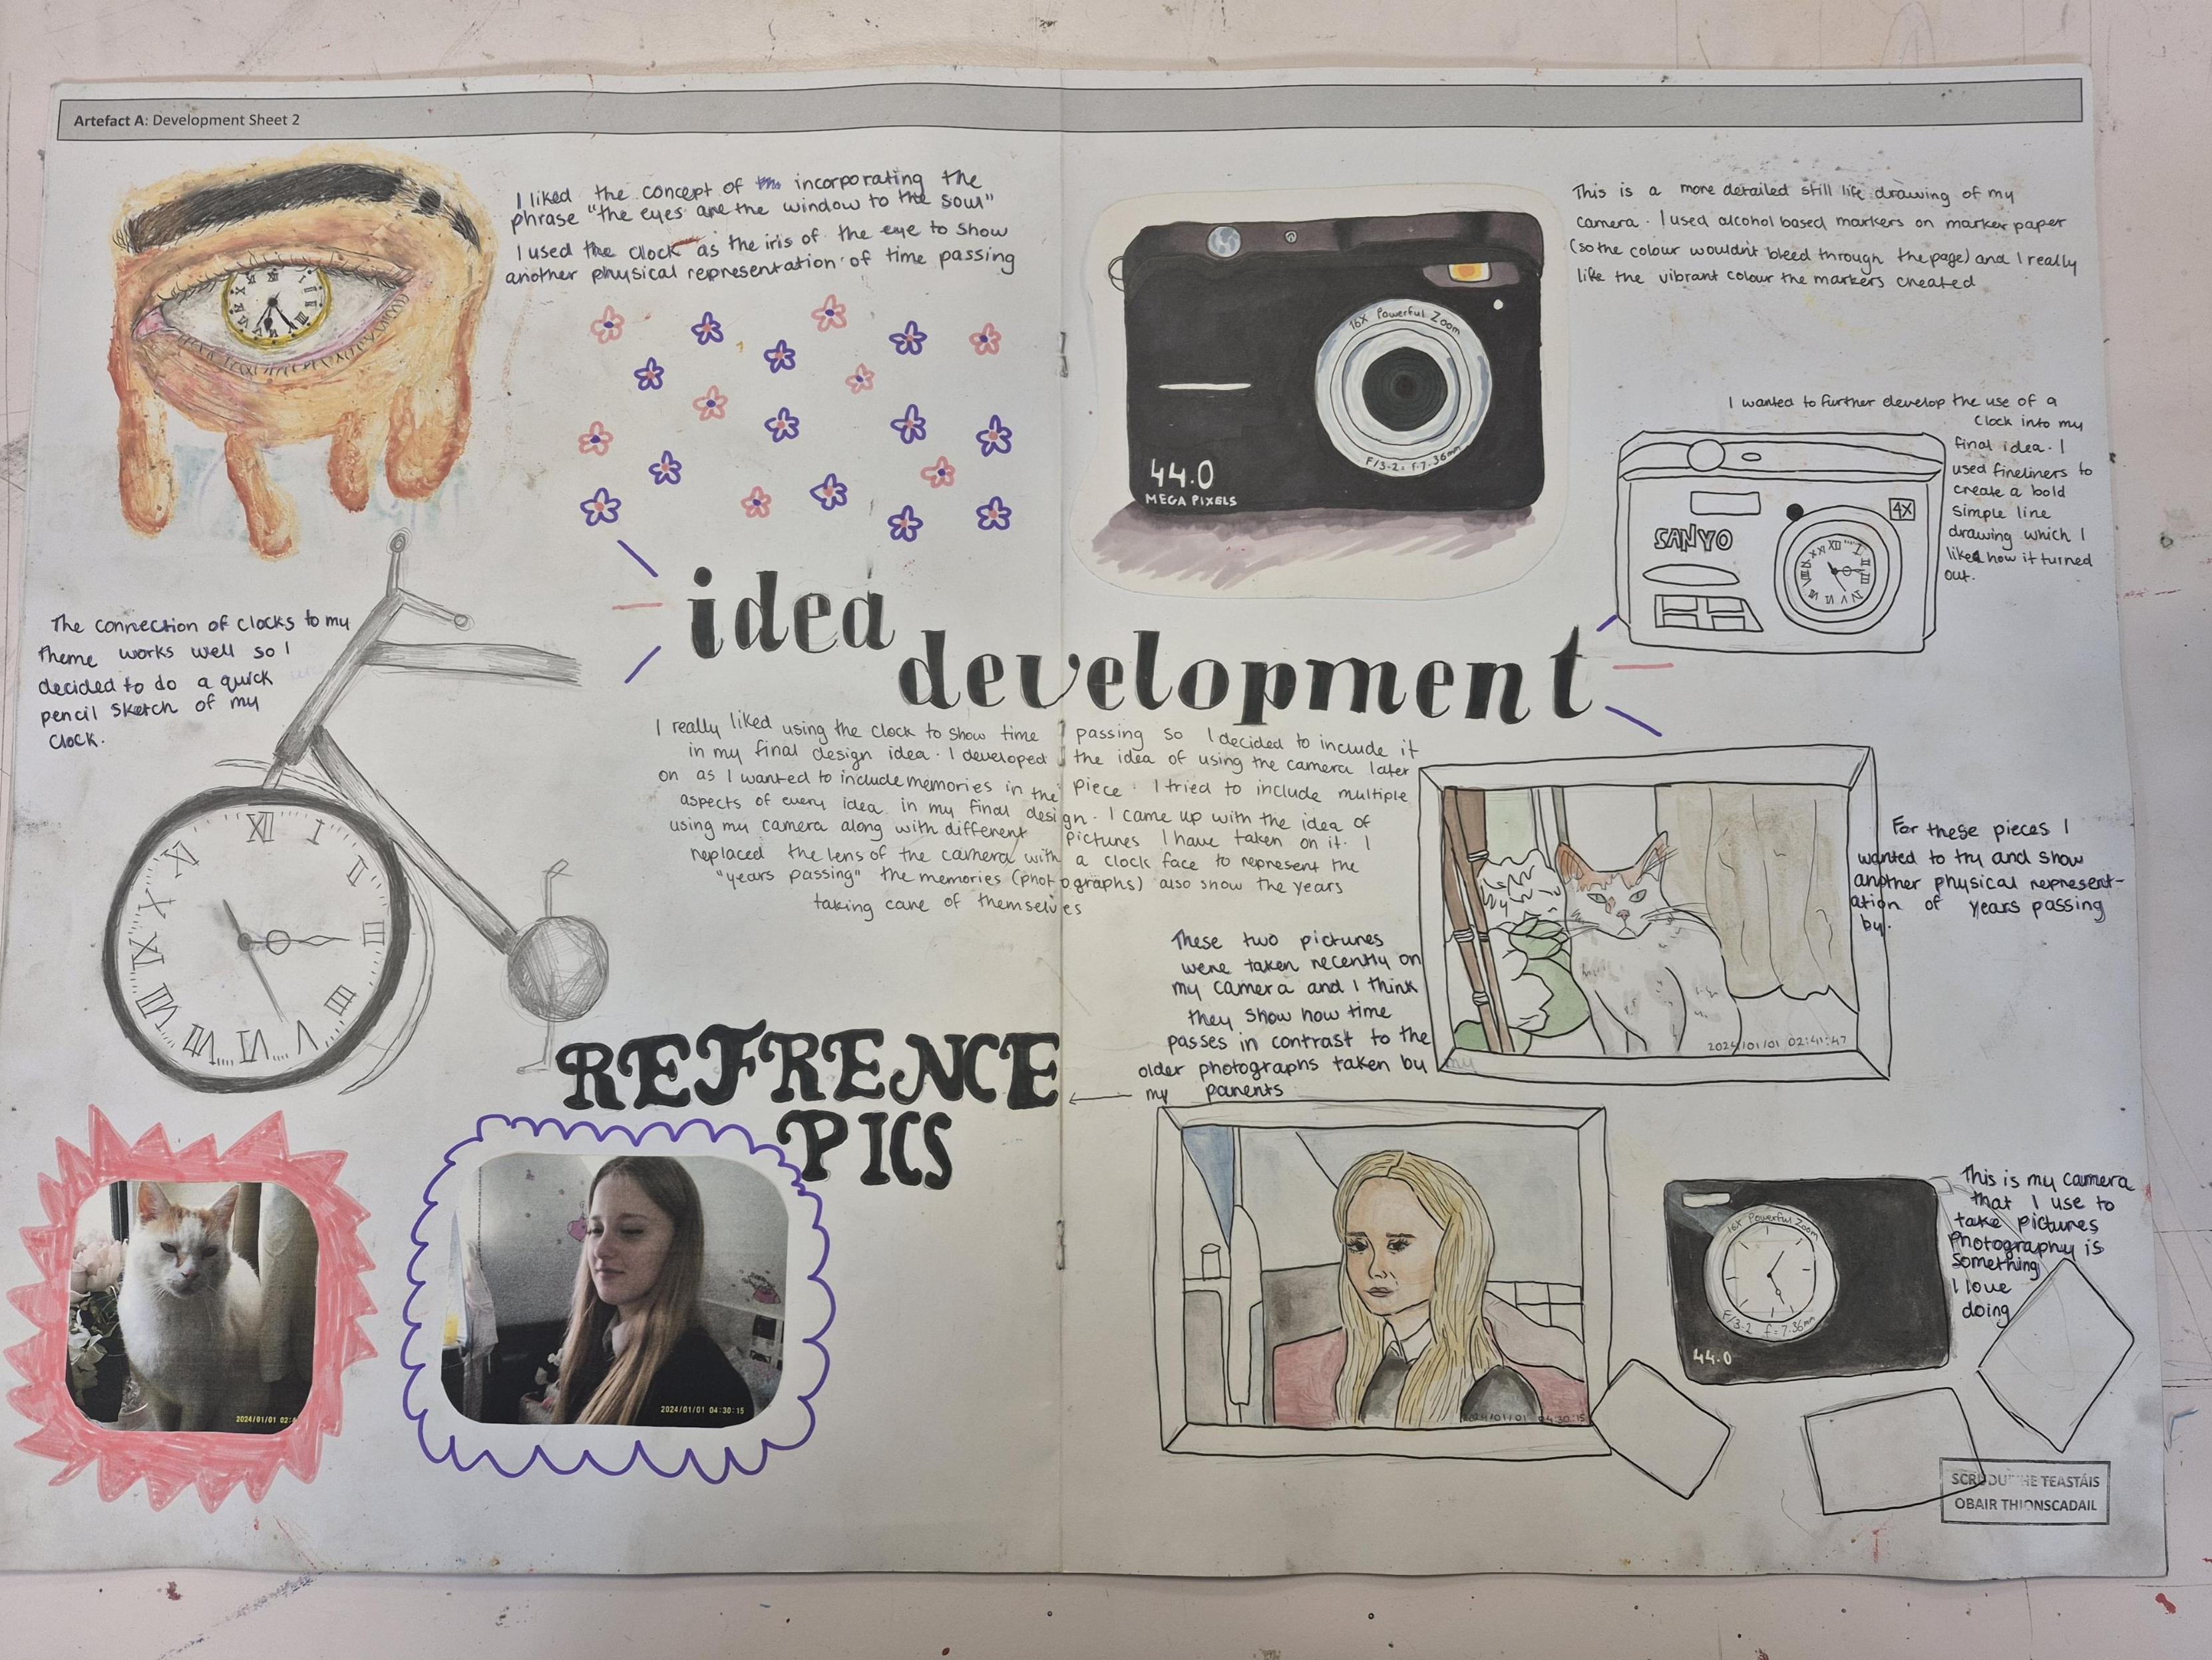 Artefact A: Development Sheet 2
I liked the concept of incorporating the
phrase "the eyes are the window to the soul"
I used the clock as the iris of the eye to show
another physical representation of time passing
This is a more detailed still life drawing of my
camera. I used alcohol based markers on marker paper
(so the colour wouldn't bleed through the page) and I really
like the vibrant colour the markers created
16X Powerful Zoom
F/3.2 f=7.36mm
44.0
MEGA PIXELS
I wanted to further develop the use of a
clock into my
final idea. I
used fineliners to
create a bold
simple line
drawing which I
liked how it turned
out.
4X
SANYO
idea
development
The connection of clocks to my
theme works well so I
decided to do a quick
pencil sketch of my
clock.
I really liked using the clock to show time passing so I decided to include it
in my final design idea. I developed the idea of using the camera later
on as I wanted to include memories in the piece. I tried to include multiple
aspects of every idea in my final design. I came up with the idea of
using my camera along with different pictures I have taken on it. I
replaced the lens of the camera with a clock face to represent the
"years passing" the memories (photographs) also show the years
taking care of themselves
XII
I
II
III
IIII
V
VI
VII
VIII
IX
X
XI
For these pieces I
wanted to try and show
another physical represent-
ation of years passing
by.
2024/01/01 02:41:47
These two pictures
were taken recently on
my camera and I think
they show how time
passes in contrast to the
older photographs taken by
my parents
REFRENCE
PICS
2024/01/01 02:4
2024/01/01 04:30:15
2024/01/01 04:30:15
This is my camera
that I use to
take pictures
Photography is
something
I love
doing
16X Powerful Zoom
F/3.2 f=7.36mm
44.0
SCRÚDUITHE TEASTÁIS
OBAIR THIONSCADAIL